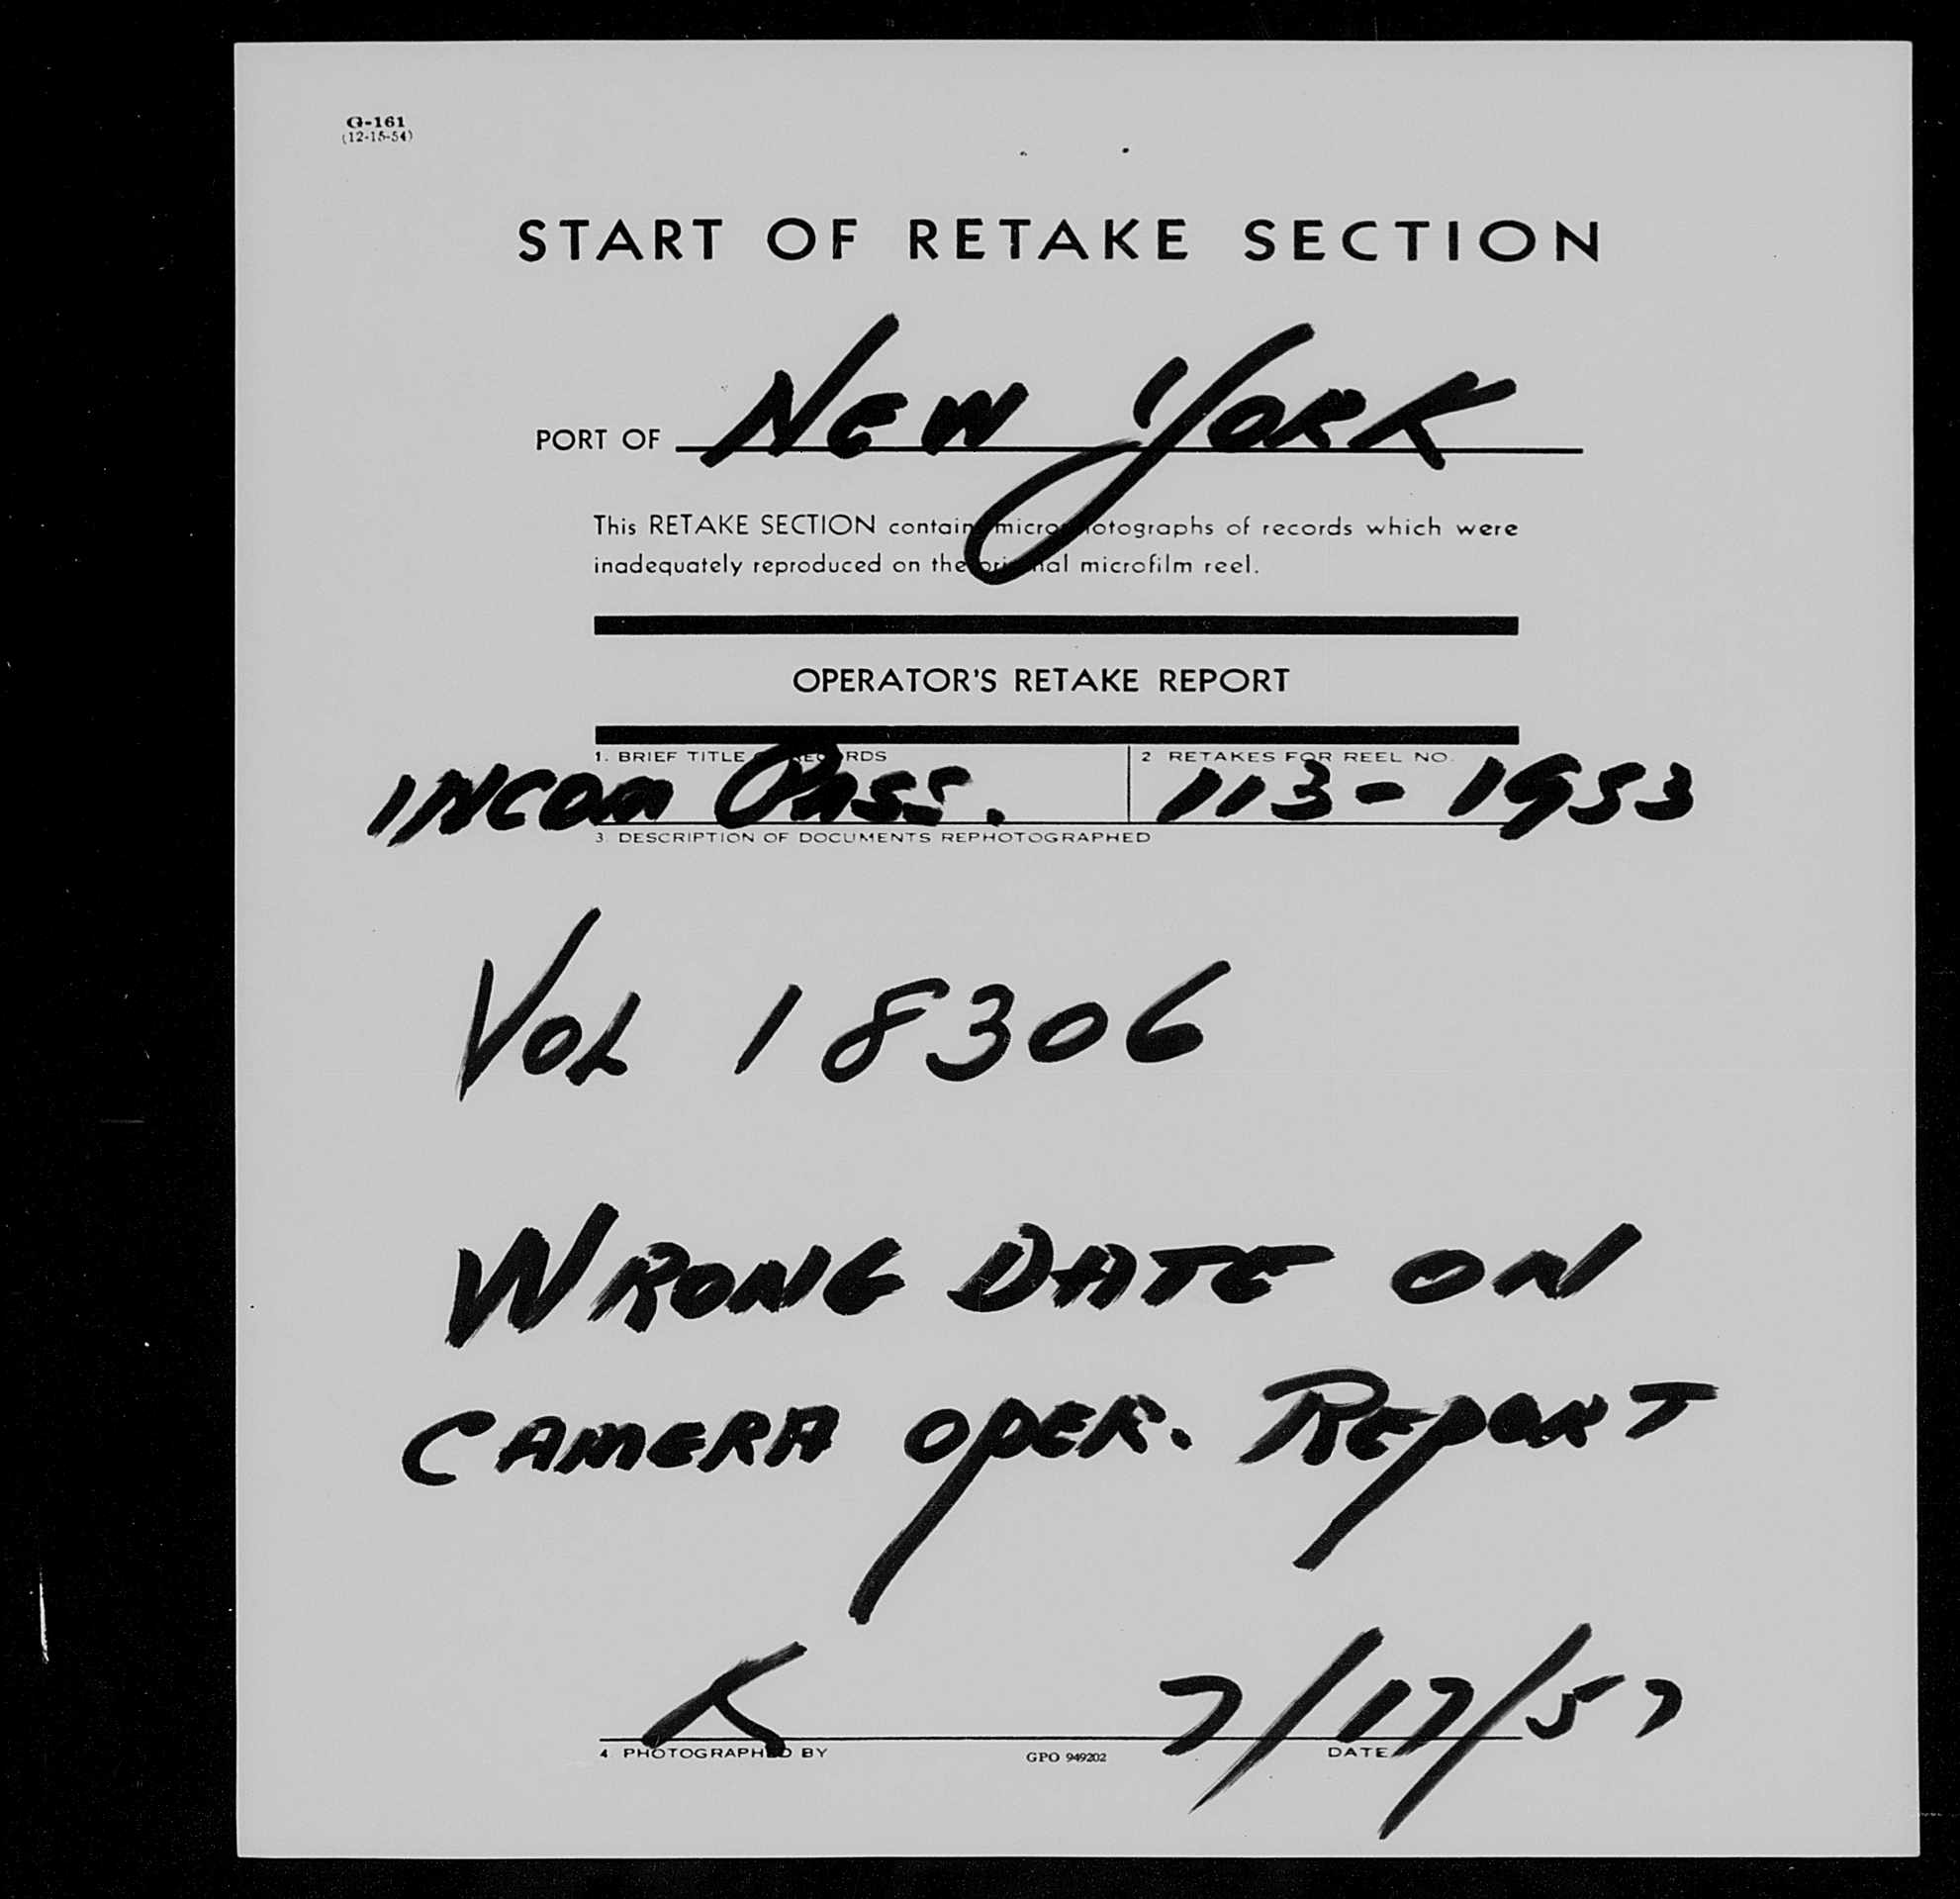 G-161
(12-15-54)
START OF RETAKE SECTION
PORT OF NEW YORK
This RETAKE SECTION contains microphotographs of records which were
inadequately reproduced on the original microfilm reel.
OPERATOR'S RETAKE REPORT
1. BRIEF TITLE OF RECORDS 2 RETAKES FOR REEL NO.
INCOM PASS. 113-1953
3. DESCRIPTION OF DOCUMENTS REPHOTOGRAPHED
VOL 18306
WRONG DATE ON
CAMERA OPER. REPORT
K 7/17/57
4 PHOTOGRAPHED BY GPO 949202 DATE